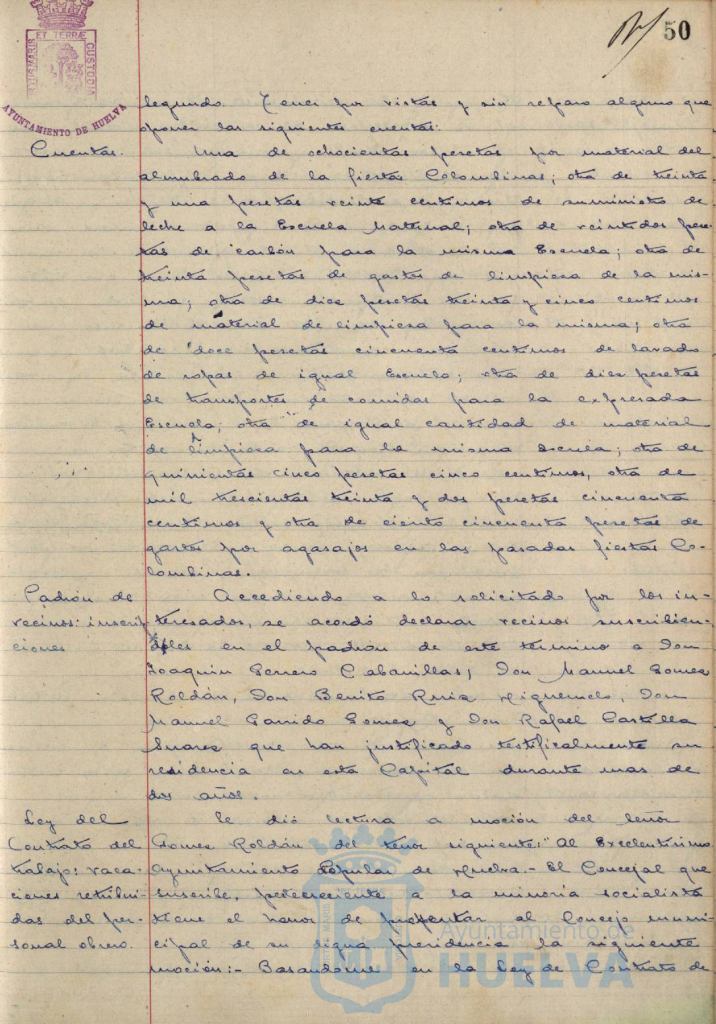 50
PORTUS MARIS ET TERRÆ CUSTODIA
AYUNTAMIENTO DE HUELVA
segundo. Tener por vistas y sin reparo alguno que
oponer las siguientes cuentas:
Cuentas. Una de ochocientas pesetas por material del
alumbrado de la fiestas Colombinas; otra de treinta
y una pesetas veinte centimos de suministro de
leche a la Escuela Maternal; otra de veintidos pese-
tas de carbón para la misma Escuela; otra de
treinta pesetas de gastos de limpieza de la mis-
ma; otra de diez pesetas treinta y cinco centimos
de material de limpieza para la misma; otra
de doce pesetas cincuenta centimos de lavado
de ropas de igual Escuela; otra de diez pesetas
de transportes de comidas para la expresada
Escuela; otra de igual cantidad de material
de limpieza para la misma escuela; otra de
quinientas cinco pesetas cinco centimos, otra de
mil trescientas treinta y dos pesetas cincuenta
centimos y otra de ciento cincuenta pesetas de
gastos por agasajos en las pasadas fiestas Co-
lombinas.
Padrón de Accediendo a lo solicitado por los in-
vecinos: inscrip teresados, se acordó declarar vecinos
ciones en el padrón de este termino a Don
Joaquin Borrero Cabanillas; Don Manuel Gomez
Roldán, Don Benito Ruiz Don
Manuel Garrido Gomez y Don Rafael Castilla
Suarez que han justificado testificalmente su
residencia en esta Capital durante mas de
dos años.
Ley del Se dió lectura a moción del Señor
Contrato del Gomez Roldán del tenor siguiente: "Al Excelentisimo
trabajo: vaca- Ayuntamiento Popular de Huelva.- El Concejal que
ciones retribui- suscribe, perteneciente a la minoria socialista
das del per- tiene el honor de presentar al Concejo muni-
sonal obrero. cipal de su digna presidencia la siguiente
moción:- Basandome en la Ley de Contrato de
Ayuntamiento de
HUELVA